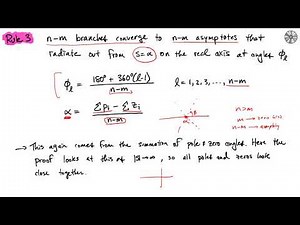 Rule 3 n-m branches converge to n-m asymptotes that
radiate out from s=α on the real axis at angles ϕℓ
ϕℓ = 180° + 360°(ℓ-1) / n-m ℓ = 1, 2, 3, ..., n-m
α = Σpi - Σzi / n-m
n>m
m → zeros
n-m →
→ This again comes from the summation of pole & zero angles. Here the
proof looks at this at |s|→∞, so all poles and zeros look
close together.